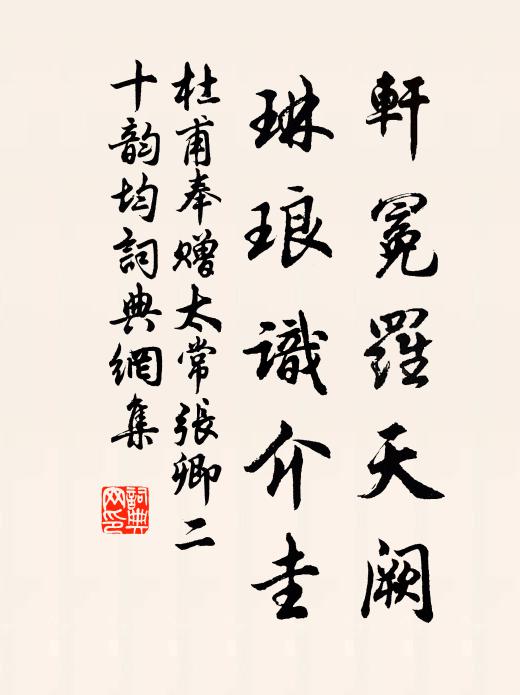 軒冕羅天闕
琳琅識介圭
杜甫奉贈太常張卿二
十韵均詞典網集
詞典网印